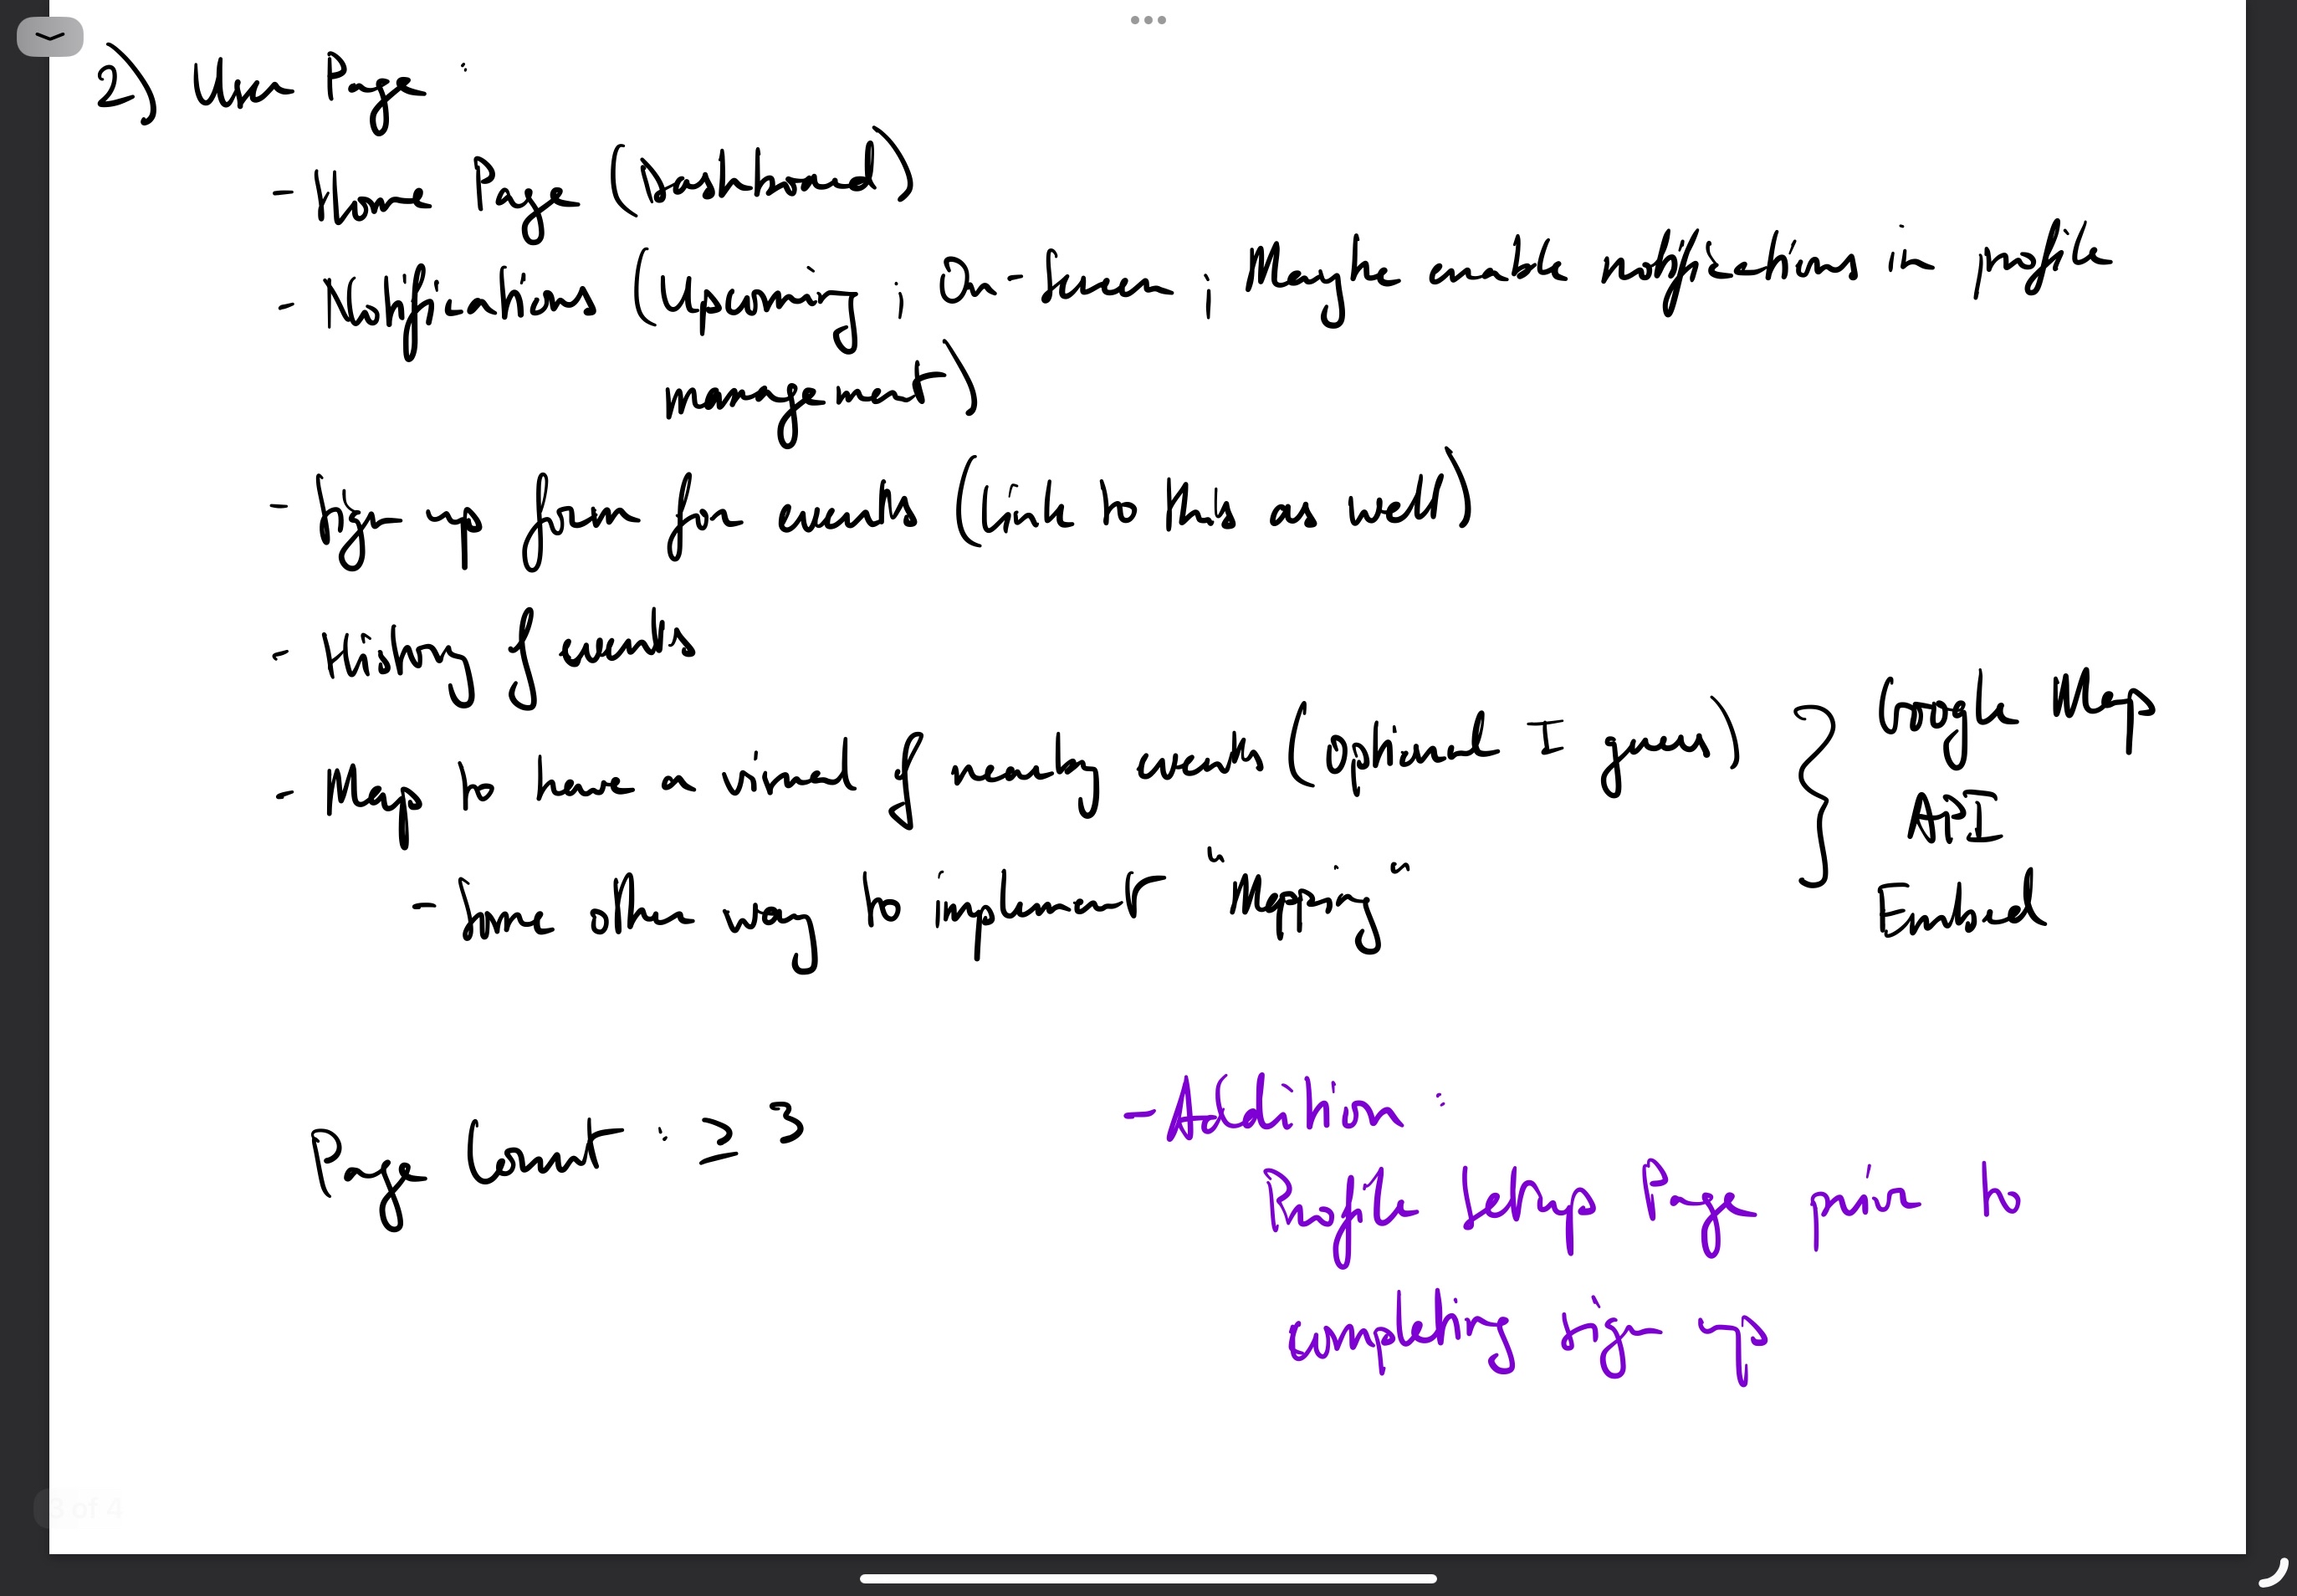 2) User Page :
- Home Page (Dashboard)
- Notifications (Upcoming ; On-going ; Maybe enable notifications in profile
management)
- Sign up form for events (Link to this as well)
- History of events
- Map to have a visual of nearby events (optional I guess) } Google Maps
API
- Some other way to implement "Mapping"
Embed
Page Count : ≥ 3
- Addition :
Profile Setup Page prior to
completing sign up
3 of 4